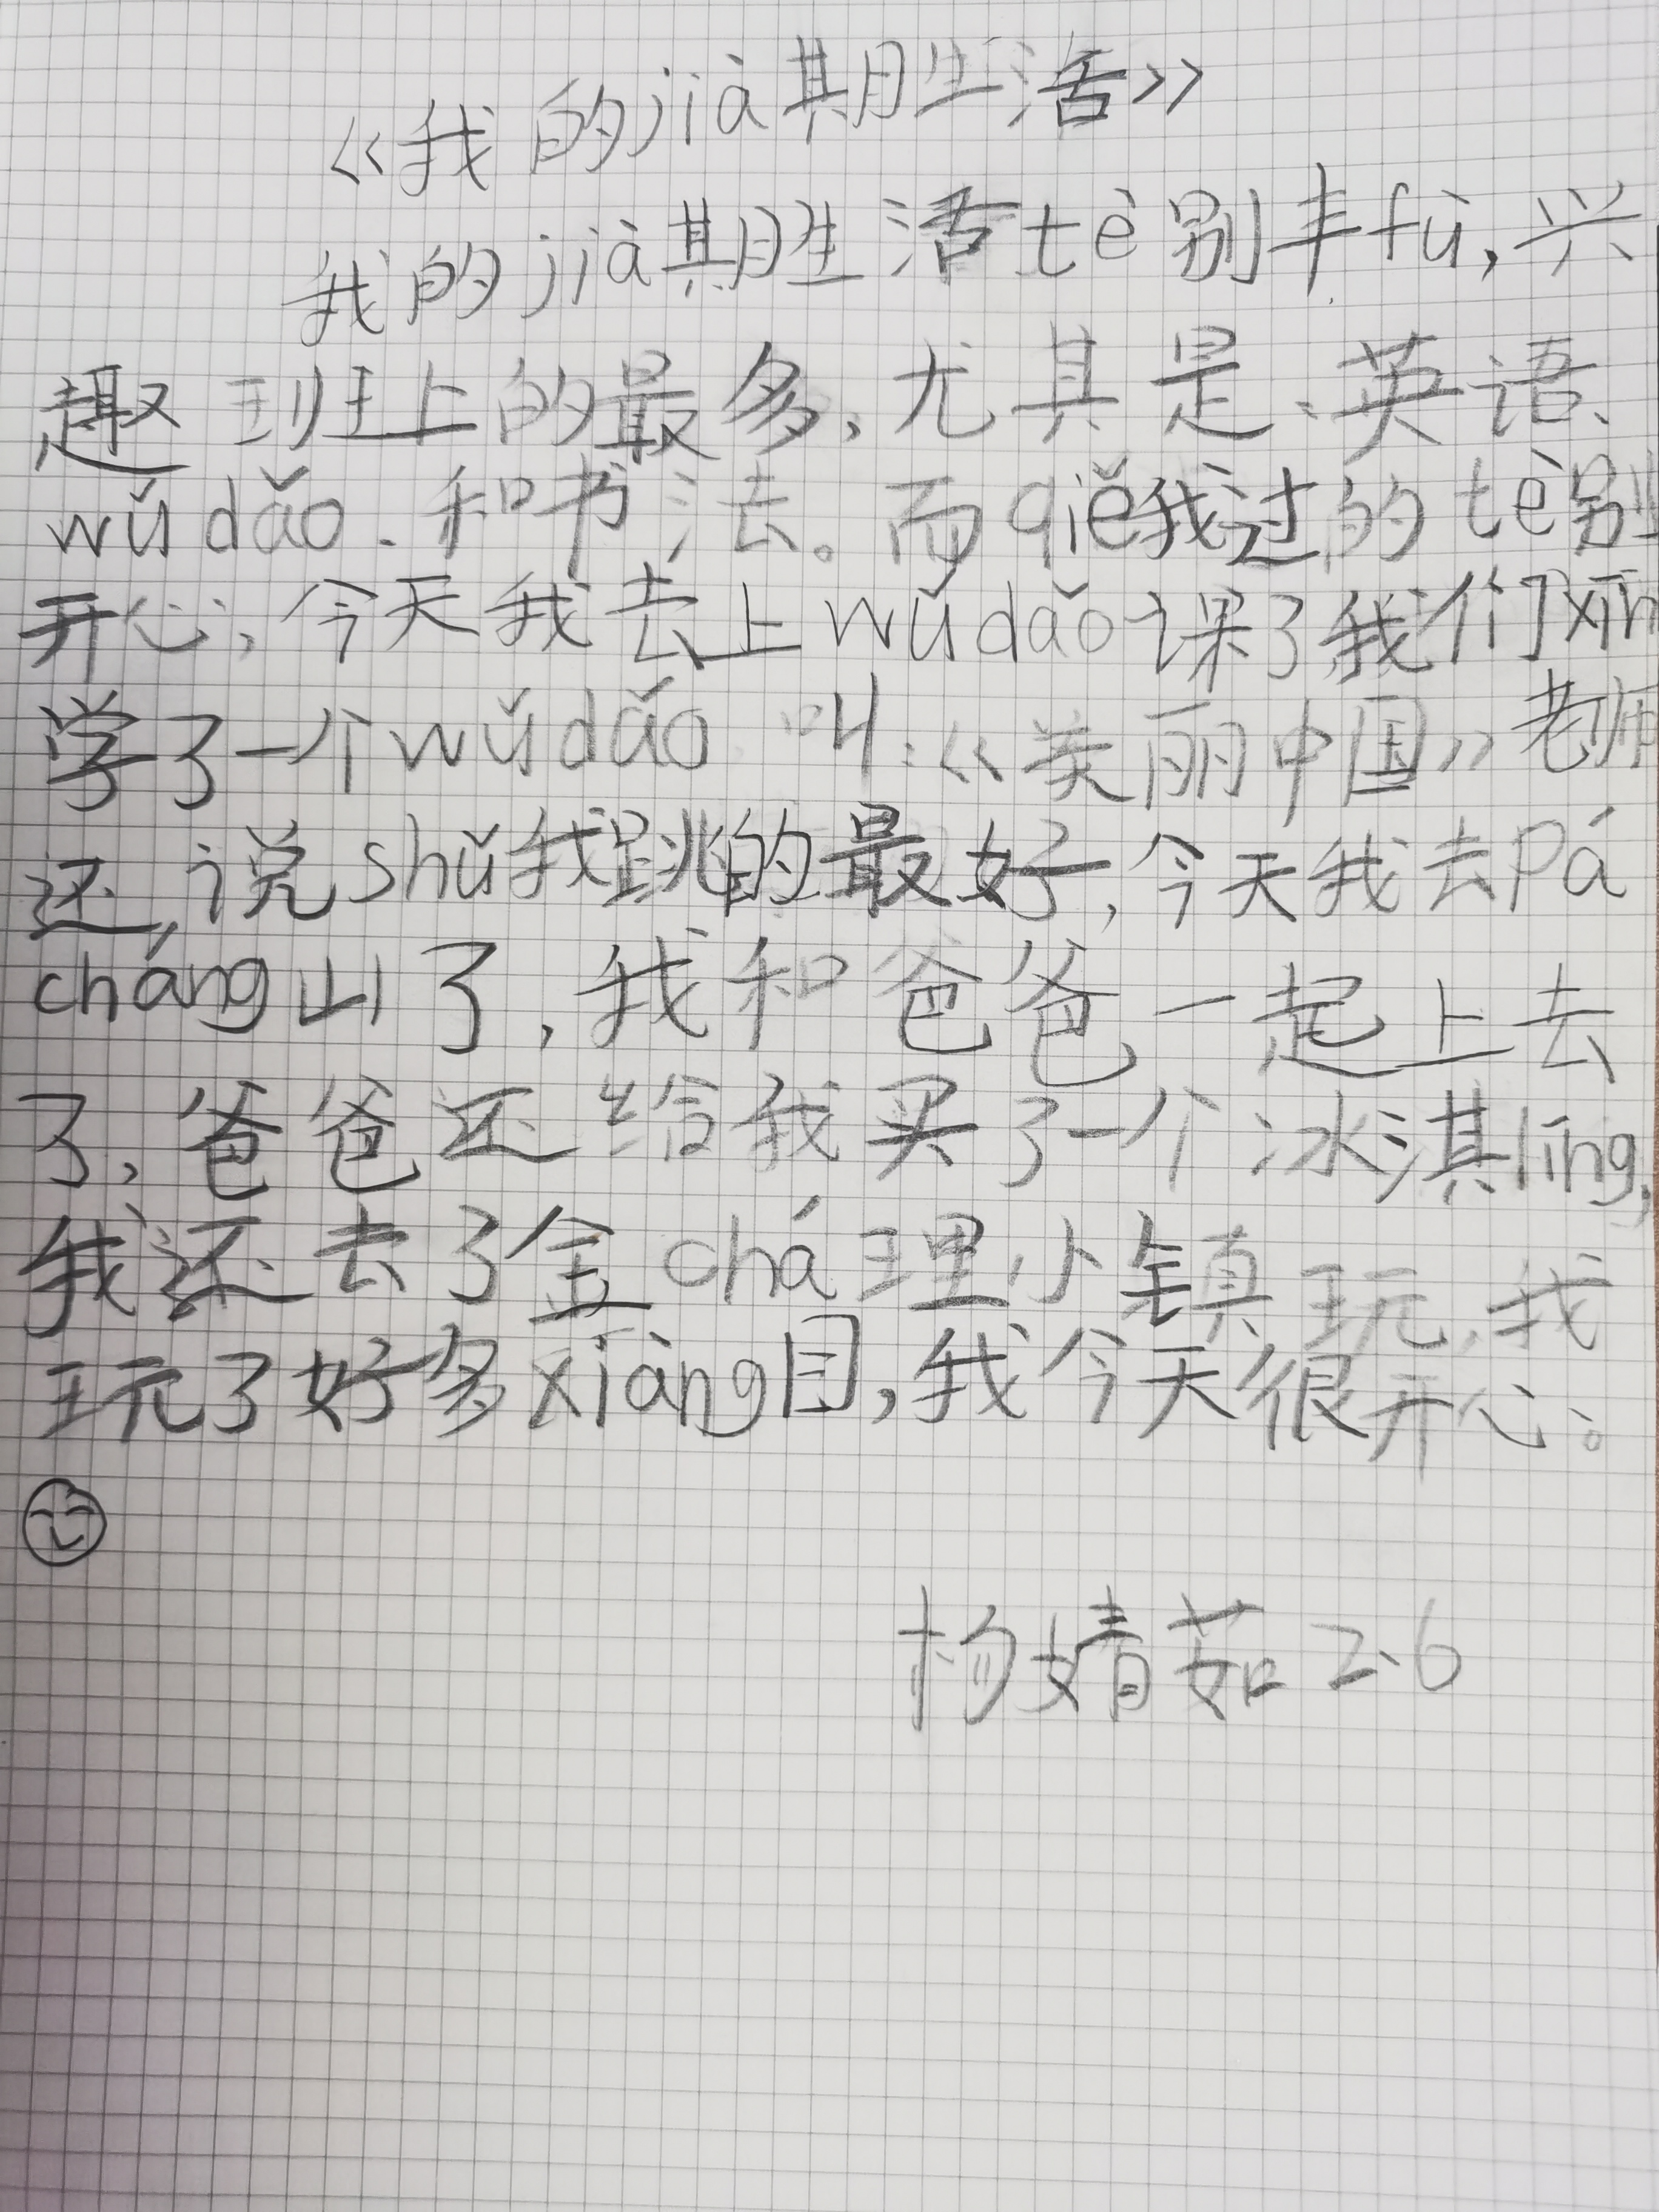 《我的jià期生活》
我的jià期生活tè别丰fù,兴
趣班上的最多,尤其是、英语、
wǔdǎo、和书法。而qiě我过的tè别
开心,今天我去上wǔdǎo课了我们xīn
学了一个wǔdǎo叫:《美丽中国》老师
还,说shǔ我跳的最好,今天我去Pá
cháng山了,我和爸爸一起上去
了,爸爸还给我买了一个冰淇líng,
我还去了金chá理小镇玩,我
玩了好多xiàng目,我今天很开心。
杨婧茹2.6